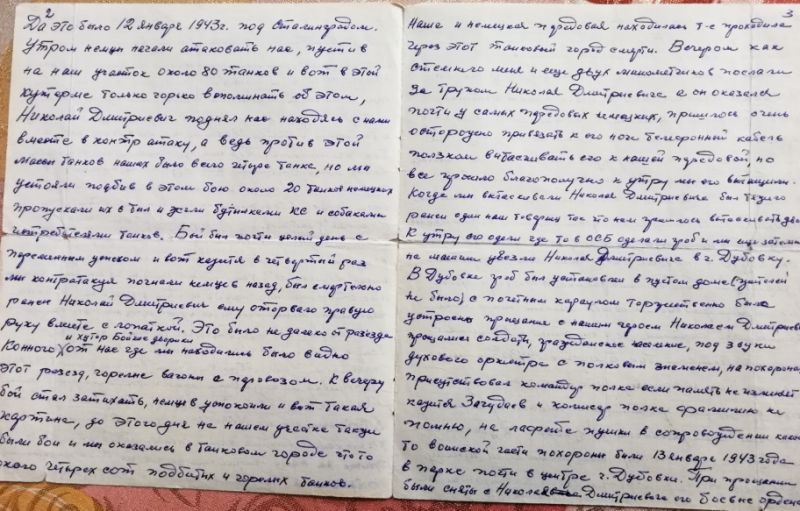 2
Да это было 12 января 1943г. под Сталинградом.
Утром немцы начали атаковать нас, пустив
на наш участок около 80 танков и вот в этой
кутерме только горько вспоминать об этом,
Николай Дмитриевич поднял нас находясь с нами
вместе в контр атаку, а ведь против этой
массы танков наших было всего четыре танка, но мы
устояли подбив в этом бою около 20 танков немецких
пропускали их в тыл и жгли бутылками КС и собаками
истребителями танков. Бой был почти целый день с
переменным успехом и вот кажится в четвертый раз
мы контратакуя погнали немцев назад, был смертельно
ранен Николай Дмитриевич ему оторвало правую
руку вместе с лопаткой. Это было не далеко от разъезда
и хутор Бойкие дворики
Конного, от нас где мы находились было видно
этот розезд, горелые вагоны с паровозом. К вечеру
бой стал затихать, немцев успокоили и вот такая
картина, до этого дня на нашем участке также
были бои и мы оказались в танковом городе что то
около четырех сот подбитых и горелых танков.
3
Наша и немецкая передовая находилась т-е проходила
через этот танковый город смерти. Вечером как
стемнело меня и еще двух минометчиков послали
за трупом Николая Дмитриевича а он оказался
почти у самых передовых немецких, пришлось очень
осторожно привязать к его ноге телефонный кабель
ползком вытаскивать его к нашей передовой, но
все прошло благополучно к утру мы его вытащили.
Когда мы вытаскивали Николая Дмитриевича был тяжело
ранен один наш товарищ так по нем пришлось вытаскивать двоих
К утру его одели где то в ОСБ сделали гроб и мы еще затемно
на машине увезли Николая Дмитриевича в г. Дубовку.
В Дубовке гроб был установлен в пустом доме (жителей
не было) с почетным караулом торжественно было
устроено прощание с нашим героем Николаем Дмитриевичем
прощались солдаты, гражданское население, под звуки
духового оркестра с полковым знаменем, на похоронах
присутствовал командир полка если память не изменяет
кажется Загудаев и комиссар полка фамилию не
помню, на лафете пушки в сопровождении какой
то воинской части похороны были 13 января 1943 года
в парке почти в центре г. Дубовки. При прощании
были сняты с Николая Дмитриевича его боевые ордена